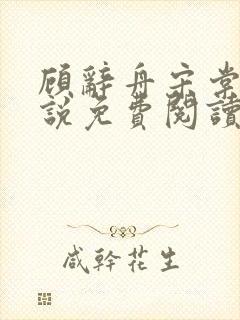 顾辭舟宋棠
說免費閱讀
咸幹花生